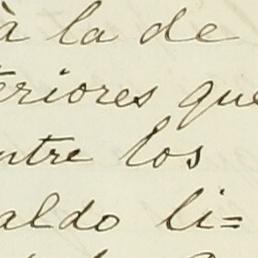 à la de
teriores que
ntre los
aldo li=